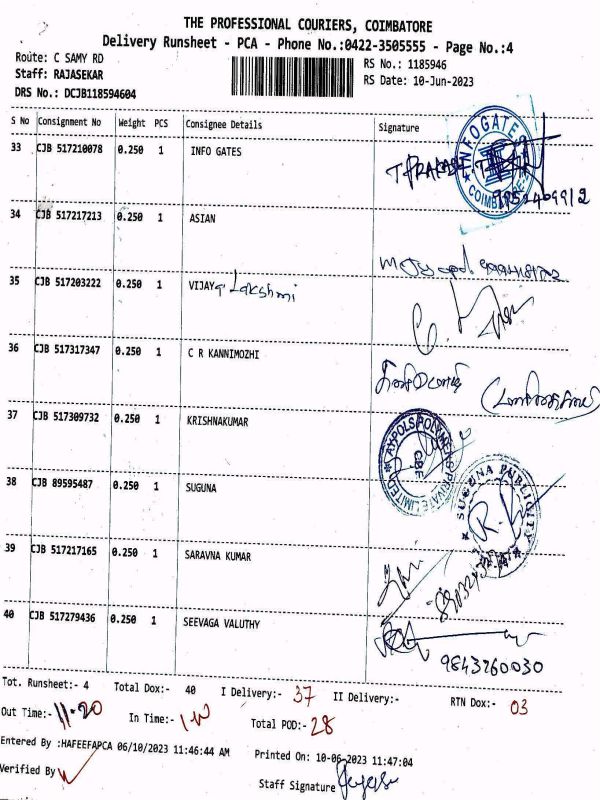 THE PROFESSIONAL COURIERS, COIMBATORE
Delivery Runsheet - PCA - Phone No.:0422-3505555 - Page No.:4
Route: C SAMY RD
Staff: RAJASEKAR
DRS No.: DCJB118594604
RS No.: 1185946
RS Date: 10-Jun-2023
S No Consignment No Weight PCS Consignee Details Signature
33 CJB 517210078 0.250 1 INFO GATES
INFOGATES COIMBATORE
34 CJB 517217213 0.250 1 ASIAN
35 CJB 517203222 0.250 1 VIJAYA Lakshmi
36 CJB 517317347 0.250 1 C R KANNIMOZHI
37 CJB 517309732 0.250 1 KRISHNAKUMAR
CBE
38 CJB 89595487 0.250 1 SUGUNA
SUGUNA PUBLICITY
39 CJB 517217165 0.250 1 SARAVNA KUMAR
40 CJB 517279436 0.250 1 SEEVAGA VALUTHY
9843760030
Tot. Runsheet:- 4 Total Dox:- 40 I Delivery:- 37 II Delivery:- RTN Dox:- 03
Out Time:- 11.20 In Time:- Total POD:- 28
Entered By :HAFEEFAPCA 06/10/2023 11:46:44 AM Printed On: 10-06-2023 11:47:04
Verified By
Staff Signature